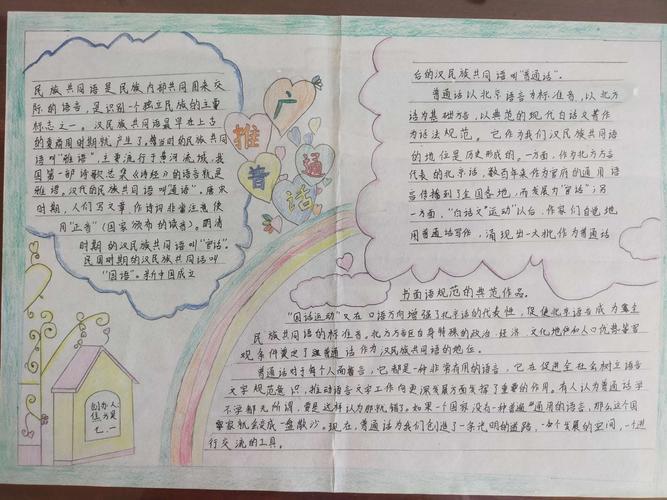 推广普通话
民族共同语是民族内部共同用来交
际的语言，是识别一个独立民族的主要
标志之一。汉民族共同语最早在上古
的夏商周时期就产生了，当时的民族共同
语叫"雅语"，主要流行于黄河流域，我
国第一部诗歌总集《诗经》的语言就是
雅语。汉代的民族共同语叫"通语"。唐宋
时期，人们写文章、作诗词非常注意使
用"正音"（国家颁布的读音）。明清
时期的汉民族共同语叫"官话"。
民国时期的汉民族共同语叫
"国语"。新中国成立
后的汉民族共同语叫"普通话"。
普通话以北京语音为标准音，以北方
话为基础方言，以典范的现代白话文著作
为语法规范。它作为我们汉民族共同语
的地位是历史形成的。一方面，作为北方方言
代表的北京话，数百年来作为官府的通用语
言传播到了全国各地，而发展为"官话"；另
一方面，"白话文"运动"以后，作家们自觉地
用普通话写作，涌现出一大批作为普通话
书面语规范的典范作品。
"国语运动"又在口语方向增强了北京话的代表性，促使北京语音成为
民族共同语的标准音。北方方言区自身特殊的政治、经济、文化地位和人口优势等客
观条件奠定了普通话作为汉民族共同语的地位。
普通话对于每个人而言，它都是一种非常有用的语言，它在促进全社会树立语言
文字规范意识，推动语言文字工作向更深发展方面发挥了重要的作用。有人认为普通话学
不学都无所谓，要是这样认为那就错了。如果一个国家没有一种普遍通用的语言，那么这个国
家就会变成一盘散沙。现在，普通话为我们创造了一条光明的道路，一个发展的空间，一个进
行交流的工具。
创办人